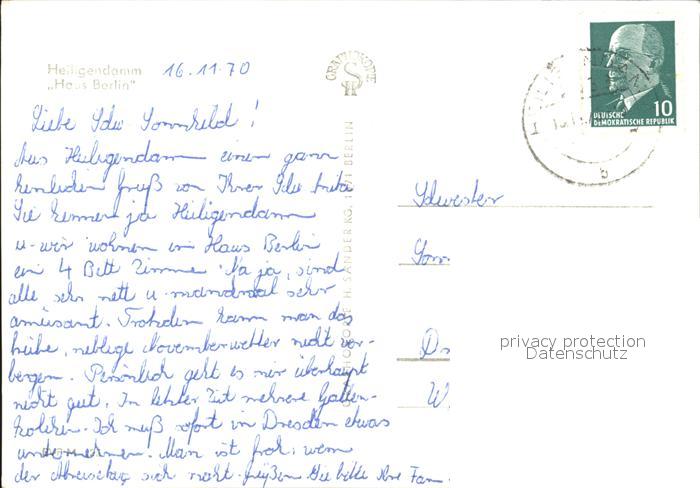 Heiligendamm
„Haus Berlin"
16.11.70
Liebe Schw. Sonnhild!
Aus Heiligendamm einen ganz
herzlichen Gruß von Ihrer Schw. Anita
Sie kennen ja Heiligendamm
u. wir wohnen im Haus Berlin
ein 4 Bett Zimmer. Na ja, sind
alle sehr nett u. manchmal sehr
amüsant. Trotzdem kann man das
trübe, neblige Novemberwetter nicht ver-
bergen. Persönlich geht es mir überhaupt
nicht gut. In letzter Zeit mehrere Gallen-
koliken. Ich muß sofort in Dresden etwas
unternehmen. Man ist froh, wenn
der Abreisetag sich naht. Grüßen Sie bitte Ihre Fam.
GRAPHOKOPIE
H. SANDER KG, BERLIN
DEUTSCHE
DEMOKRATISCHE REPUBLIK
10
b
Schwester
Son
D
W
privacy protection
Datenschutz